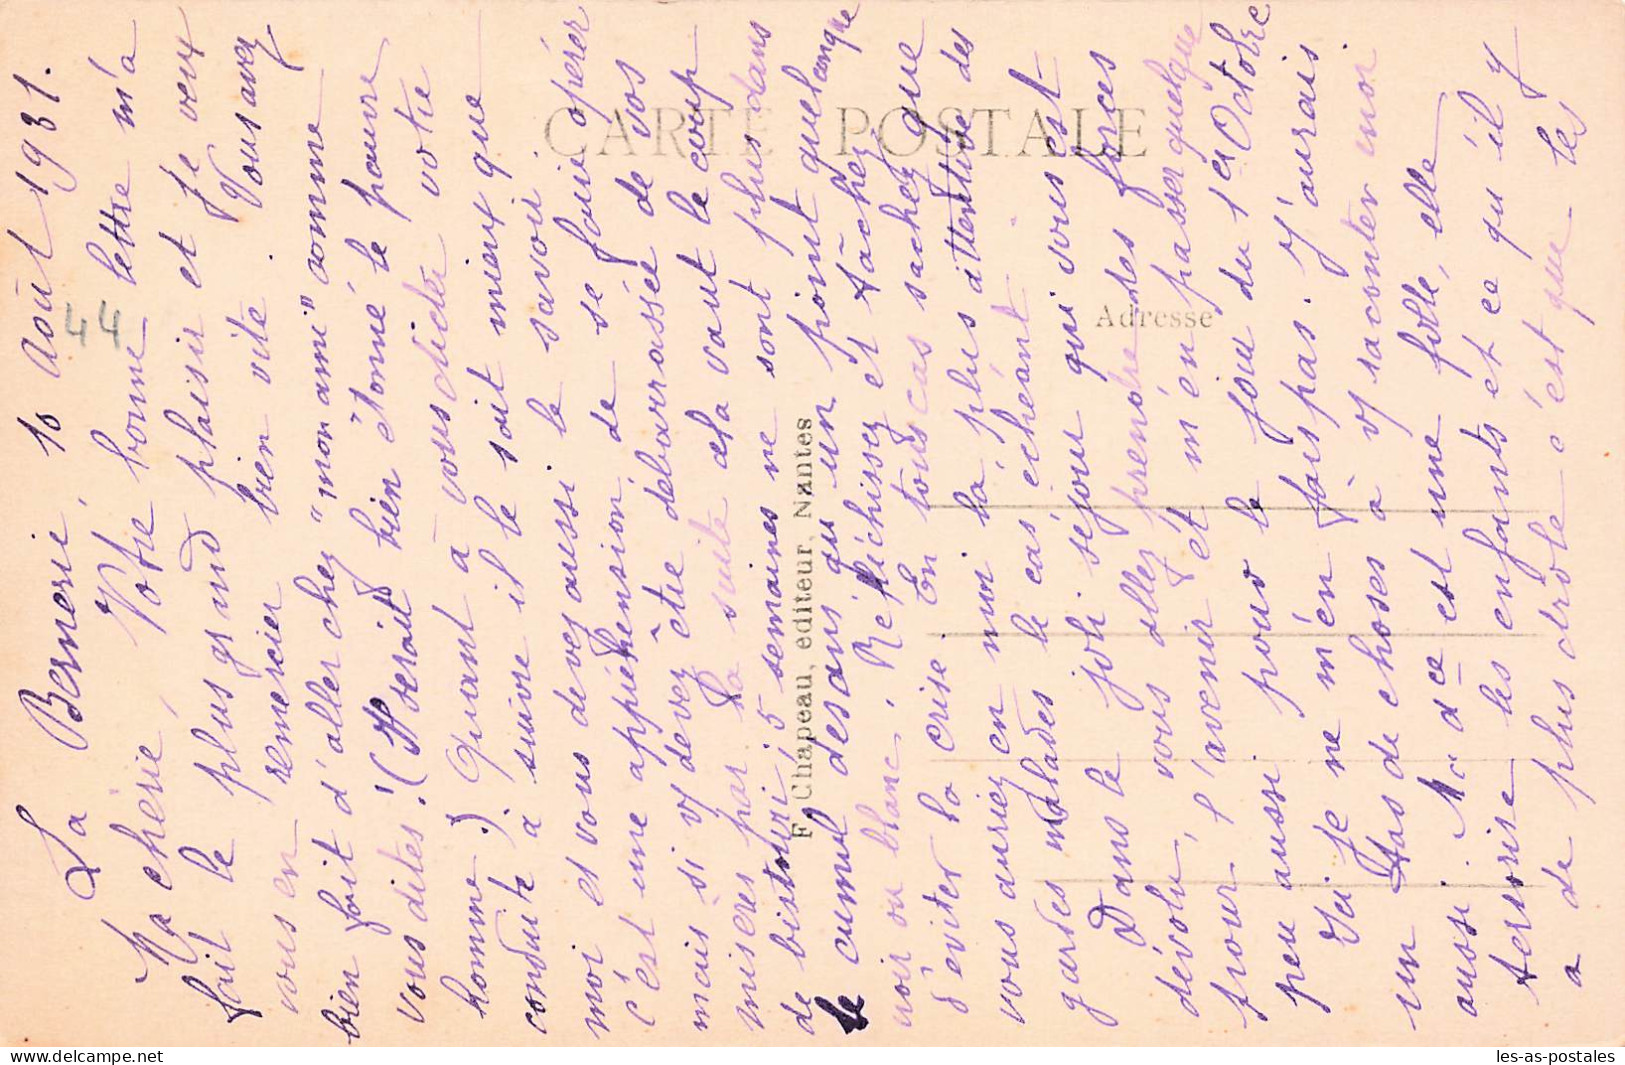 La Bernerie, 10 Août 1931.
44
Ma chérie, Votre bonne lettre m'a
fait le plus grand plaisir et je veux
vous en remercier bien vite. Vous avez
bien fait d'aller chez "mon ami" comme
vous dites! (Il serait bien étonné le pauvre
homme!) Quant à vous dicter votre
conduite à suivre il le sait mieux que
moi et vous devez aussi le savoir.
C'est une appréhension de se faire opérer
mais si vs devez être débarrassée de vos
misères par la suite cela vaut le coup
de bistouri; 5 semaines ne sont plus dans
le cumul des ans qu'un point quelconque
noir ou blanc. Réfléchissez et tâchez
d'éviter la crise. En tous cas sachez que
vous auriez en moi la plus attentive des
gardes malades le cas échéant.
Dans le joli séjour qui vous est
dévolu, vous allez prendre des forces
pour l'avenir et m'en passer quelque
peu aussi pour le jour du 1er Octobre
Ici je ne m'en fais pas. J'aurais
un tas de choses à vs raconter mon
aussi. Ma dce est une folle, elle
terrorise les enfants et ce qu'il y
a de plus drôle c'est que les
CARTE POSTALE
Adresse
F. Chapeau, editeur, Nantes
les-as-postales